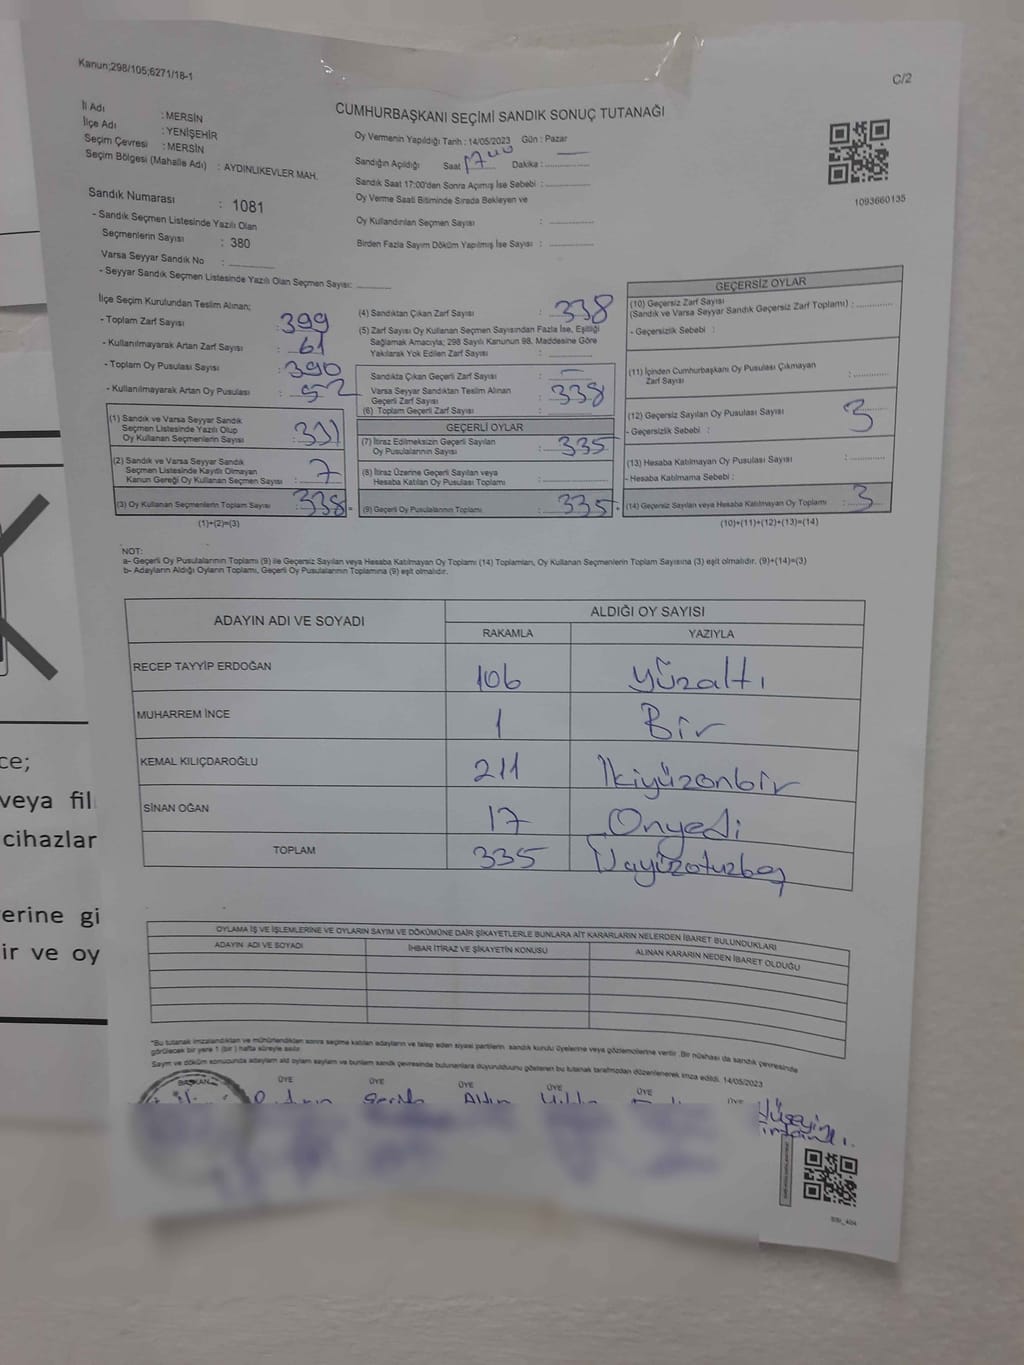 Kanun;298/105;6271/18-1
C/2
CUMHURBAŞKANI SEÇİMİ SANDIK SONUÇ TUTANAĞI
İl Adı : MERSİN
İlçe Adı : YENİŞEHİR
Seçim Çevresi : MERSİN
Seçim Bölgesi (Mahalle Adı) : AYDINLIKEVLER MAH.
Oy Vermenin Yapıldığı Tarih : 14/05/2023 Gün : Pazar
Sandığın Açıldığı Saat 17:00 Dakika : ............
Sandık Saat 17:00'den Sonra Açımış İse Sebebi : ............
Oy Verme Saati Bitiminde Sırada Bekleyen ve
Oy Kullandırılan Seçmen Sayısı : ............
Birden Fazla Sayım Döküm Yapılmış İse Sayısı : ............
1093660135
Sandık Numarası : 1081
- Sandık Seçmen Listesinde Yazılı Olan
Seçmenlerin Sayısı : 380
Varsa Seyyar Sandık No : ............
- Seyyar Sandık Seçmen Listesinde Yazılı Olan Seçmen Sayısı: ............
İlçe Seçim Kurulundan Teslim Alınan;
- Toplam Zarf Sayısı : 399
- Kullanılmayarak Artan Zarf Sayısı : 61
- Toplam Oy Pusulası Sayısı : 390
- Kullanılmayarak Artan Oy Pusulası : 52
(1) Sandık ve Varsa Seyyar Sandık
Seçmen Listesinde Yazılı Olup
Oy Kullanan Seçmenlerin Sayısı : 331
(2) Sandık ve Varsa Seyyar Sandık
Seçmen Listesinde Kayıtlı Olmayan
Kanun Gereği Oy Kullanan Seçmen Sayısı : 7
(3) Oy Kullanan Seçmenlerin Toplam Sayısı : 338 =
(1)+(2)=(3)
(4) Sandıktan Çıkan Zarf Sayısı : 338
(5) Zarf Sayısı Oy Kullanan Seçmen Sayısından Fazla İse, Eşitliği
Sağlamak Amacıyla; 298 Sayılı Kanunun 98. Maddesine Göre
Yakılarak Yok Edilen Zarf Sayısı : ............
Sandıkta Çıkan Geçerli Zarf Sayısı : –
Varsa Seyyar Sandıktan Teslim Alınan
Geçerli Zarf Sayısı : 338
(6) Toplam Geçerli Zarf Sayısı : ............
GEÇERLİ OYLAR
(7) İtiraz Edilmeksizin Geçerli Sayılan
Oy Pusulalarının Sayısı : 335
(8) İtiraz Üzerine Geçerli Sayılan veya
Hesaba Katılan Oy Pusulası Toplamı : ............
(9) Geçerli Oy Pusulalarının Toplamı : 335 +
GEÇERSİZ OYLAR
(10) Geçersiz Zarf Sayısı
(Sandık ve Varsa Seyyar Sandık Geçersiz Zarf Toplamı) : ............
- Geçersizlik Sebebi :
(11) İçinden Cumhurbaşkanı Oy Pusulası Çıkmayan
Zarf Sayısı : ............
(12) Geçersiz Sayılan Oy Pusulası Sayısı : 3
- Geçersizlik Sebebi :
(13) Hesaba Katılmayan Oy Pusulası Sayısı : ............
- Hesaba Katılmama Sebebi :
(14) Geçersiz Sayılan veya Hesaba Katılmayan Oy Toplamı : 3
(10)+(11)+(12)+(13)=(14)
NOT:
a- Geçerli Oy Pusulalarının Toplamı (9) ile Geçersiz Sayılan veya Hesaba Katılmayan Oy Toplamı (14) Toplamları, Oy Kullanan Seçmenlerin Toplam Sayısına (3) eşit olmalıdır. (9)+(14)=(3)
b- Adayların Aldığı Oyların Toplamı, Geçerli Oy Pusulalarının Toplamına (9) eşit olmalıdır.
ADAYIN ADI VE SOYADI ALDIĞI OY SAYISI
RAKAMLA YAZIYLA
RECEP TAYYİP ERDOĞAN 106 yüzaltı
MUHARREM İNCE 1 Bir
KEMAL KILIÇDAROĞLU 211 İkiyüzonbir
SİNAN OĞAN 17 Onyedi
TOPLAM 335
OYLAMA İŞ VE İŞLEMLERİNE VE OYLARIN SAYIM VE DÖKÜMÜNE DAİR ŞİKAYETLERLE BUNLARA AİT KARARLARIN NELERDEN İBARET BULUNDUKLARI
ADAYIN ADI VE SOYADI İHBAR İTİRAZ VE ŞİKAYETİN KONUSU ALINAN KARARIN NEDEN İBARET OLDUĞU
*Bu tutanak imzalandıktan ve mühürlendikten sonra seçime katılan adayların ve talep eden siyasi partilerin sandık kurulu üyelerine veya gözlemcilerine verilir. Bir nüshası da sandık çevresinde
görülecek bir yere 1 (bir) hafta süreyle asılır.
Sayım ve döküm sonucunda adayların imza edildi. 14/05/2023
BAŞKAN ÜYE ÜYE ÜYE ÜYE ÜYE ÜYE
Hüseyin
ce;
veya fil
cihazlar
erine gi
ir ve oy